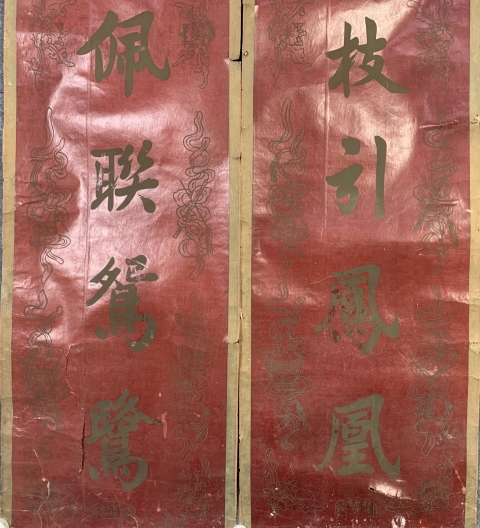 枝引鳳凰
佩聯鴛鷺